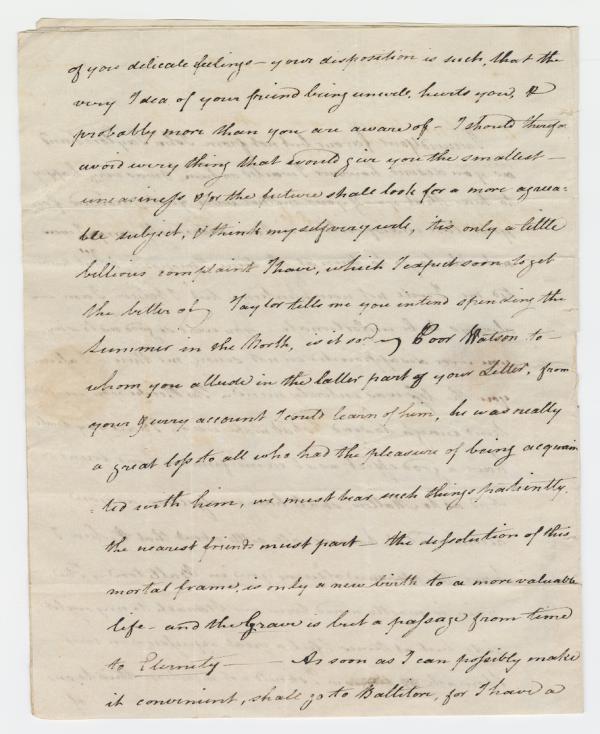 of your delicate feelings – your disposition is such, that the
very Idea of your friend being unwell, hurts you, &
probably more than you are aware of – I should therefor
avoid every thing that would give you the smallest –
uneasiness & for the future shall look for a more agreea-
ble subject, & think myself very well, tis only a little
billious complaint I have, which I expect soon to get
the better of Taylor tells me you intend spending the
Summer in the North, is it so? Poor Watson to –
whom you allude in the latter part of your Letter, from
your & every account I could learn of him, he was really
a great loss to all who had the pleasure of being acquain
-ted with him, we must bear such things patiently,
the nearest friends must part – the dissolution of this
mortal frame, is only a new birth to a more valuable
life – and the Grave is but a passage from time
to Eternity —— As soon as I can possibly make
it convenient, shall go to Baltitore, for I have a